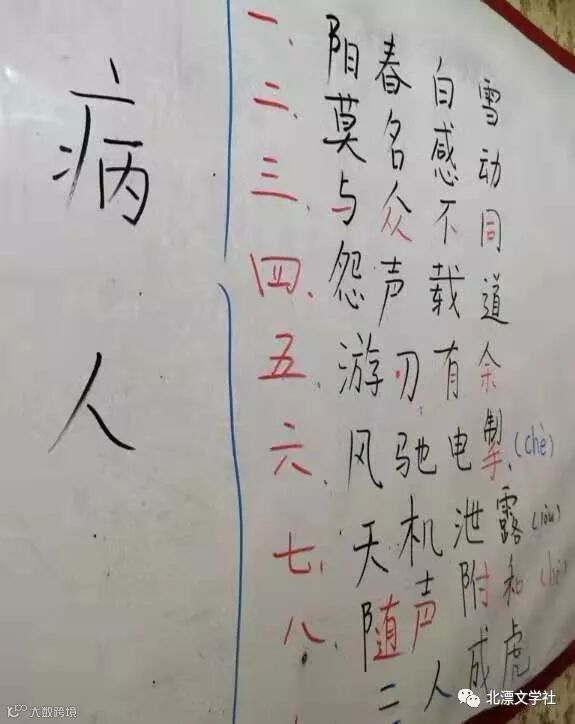 病人
一、阳春白雪
二、莫名感动
三、与众不同
四、怨声载道
五、游刃有余
六、风驰电掣(chè)
七、天机泄露(lòu)
八、随声附和(hè)
人成虎
北漂文学社
大数跨境